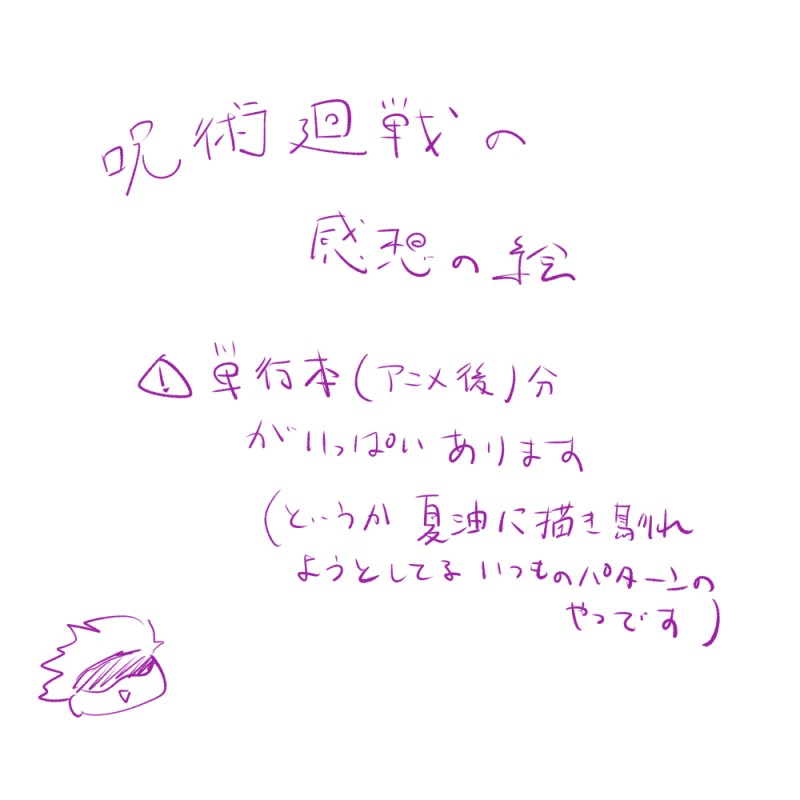 呪術廻戦の
感想の絵
⚠単行本(アニメ後)分
がいっぱいあります
(というか 夏油に描き馴れ
ようとしてる いつものパターンの
やつです)